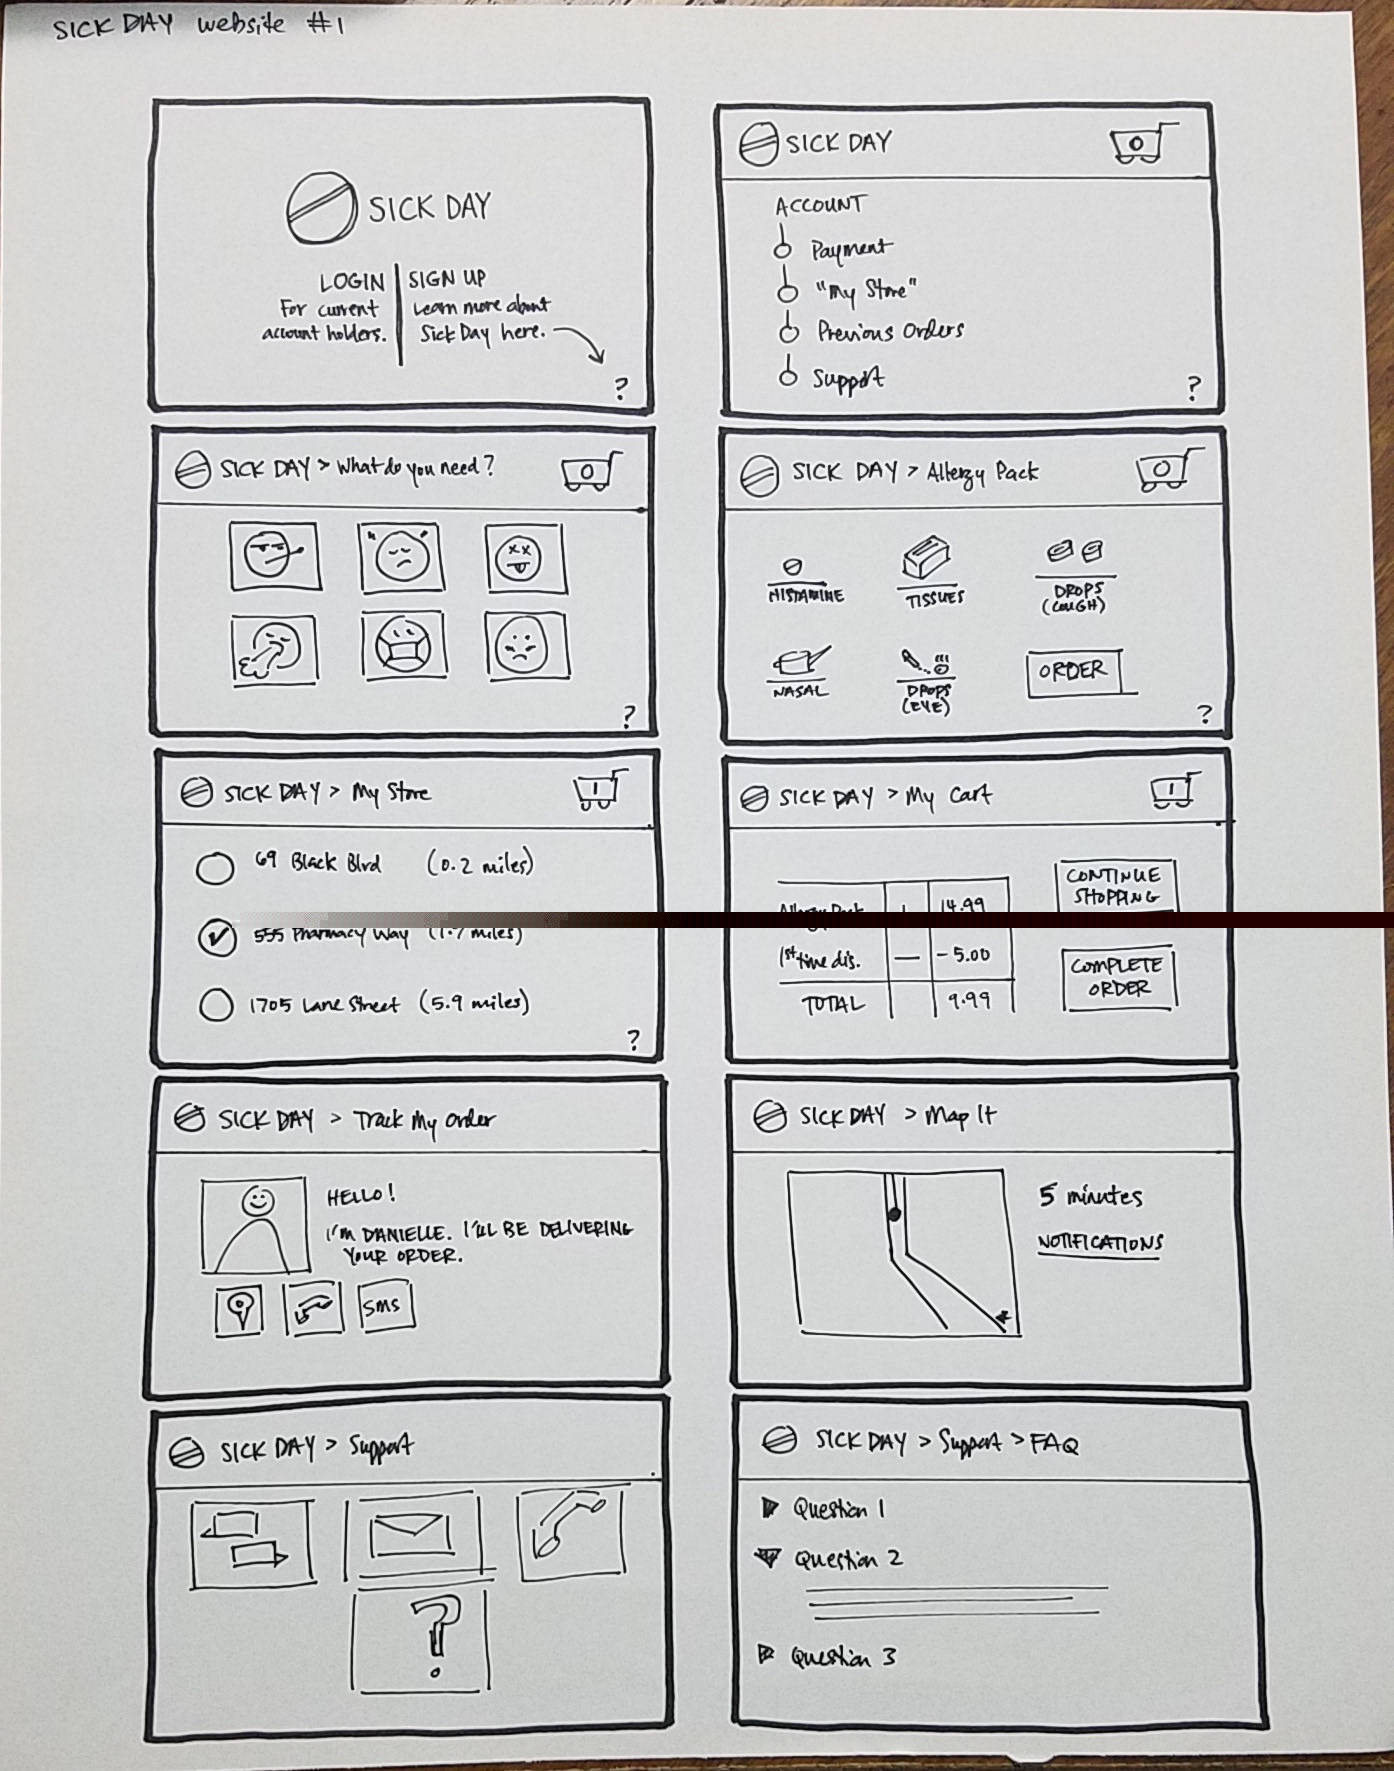 SICK DAY website #1
SICK DAY
LOGIN
For current
account holders.
SIGN UP
Learn more about
Sick Day here.
?
SICK DAY
0
ACCOUNT
Payment
"My Store"
Previous Orders
Support
?
SICK DAY > What do you need?
0
?
SICK DAY > Allergy Pack
0
HISTAMINE
TISSUES
DROPS
(COUGH)
NASAL
DROPS
(EYE)
ORDER
?
SICK DAY > My Store
1
69 Black Blvd (0.2 miles)
555 Pharmacy Way (1.7 miles)
1705 Lane Street (5.9 miles)
?
SICK DAY > My Cart
1
Allergy Pack 1 14.99
1st time dis. — - 5.00
TOTAL 9.99
CONTINUE
SHOPPING
COMPLETE
ORDER
SICK DAY > Track My Order
HELLO!
I'M DANIELLE. I'LL BE DELIVERING
YOUR ORDER.
SMS
SICK DAY > Map It
5 minutes
NOTIFICATIONS
SICK DAY > Support
?
SICK DAY > Support > FAQ
Question 1
Question 2
Question 3